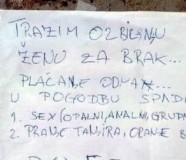 TRAŽIM OZBILJNU
ŽENU ZA BRAK...
PLAĆANJE ODMA...
U POGODBU SPADA
1. SEX (OPALNI, ANALNI, GRUPN
2. PRANJE TANJIRA, OPANJE B